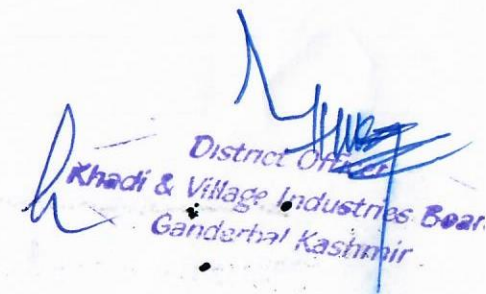 District Officer
Khadi & Village Industries Board
Ganderbal Kashmir